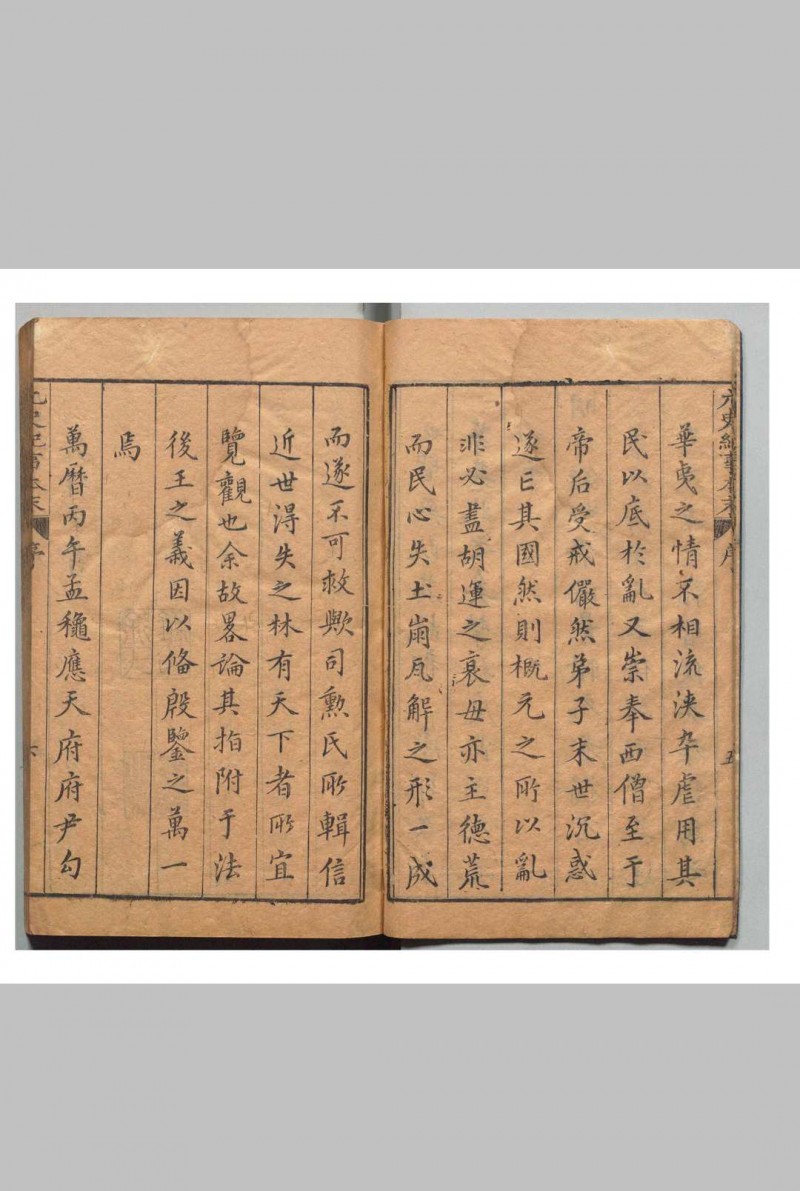 元史紀事本末 序 五
華夷之情不相流浹卒虐用其
民以底於亂又崇奉西僧至于
帝后受戒儼然弟子末世沉惑
遂亡其國然則概元之所以亂
非必盡胡運之衰毋亦主德荒
而民心失土崩瓦解之形一成
而遂不可救歟司勲氏所輯信
近世得失之林有天下者所宜
覽觀也余故畧論其指附于法
後王之義因以俻殷鑒之萬一
焉
萬曆丙午孟穐應天府府尹勾
元史紀事本末 序 六